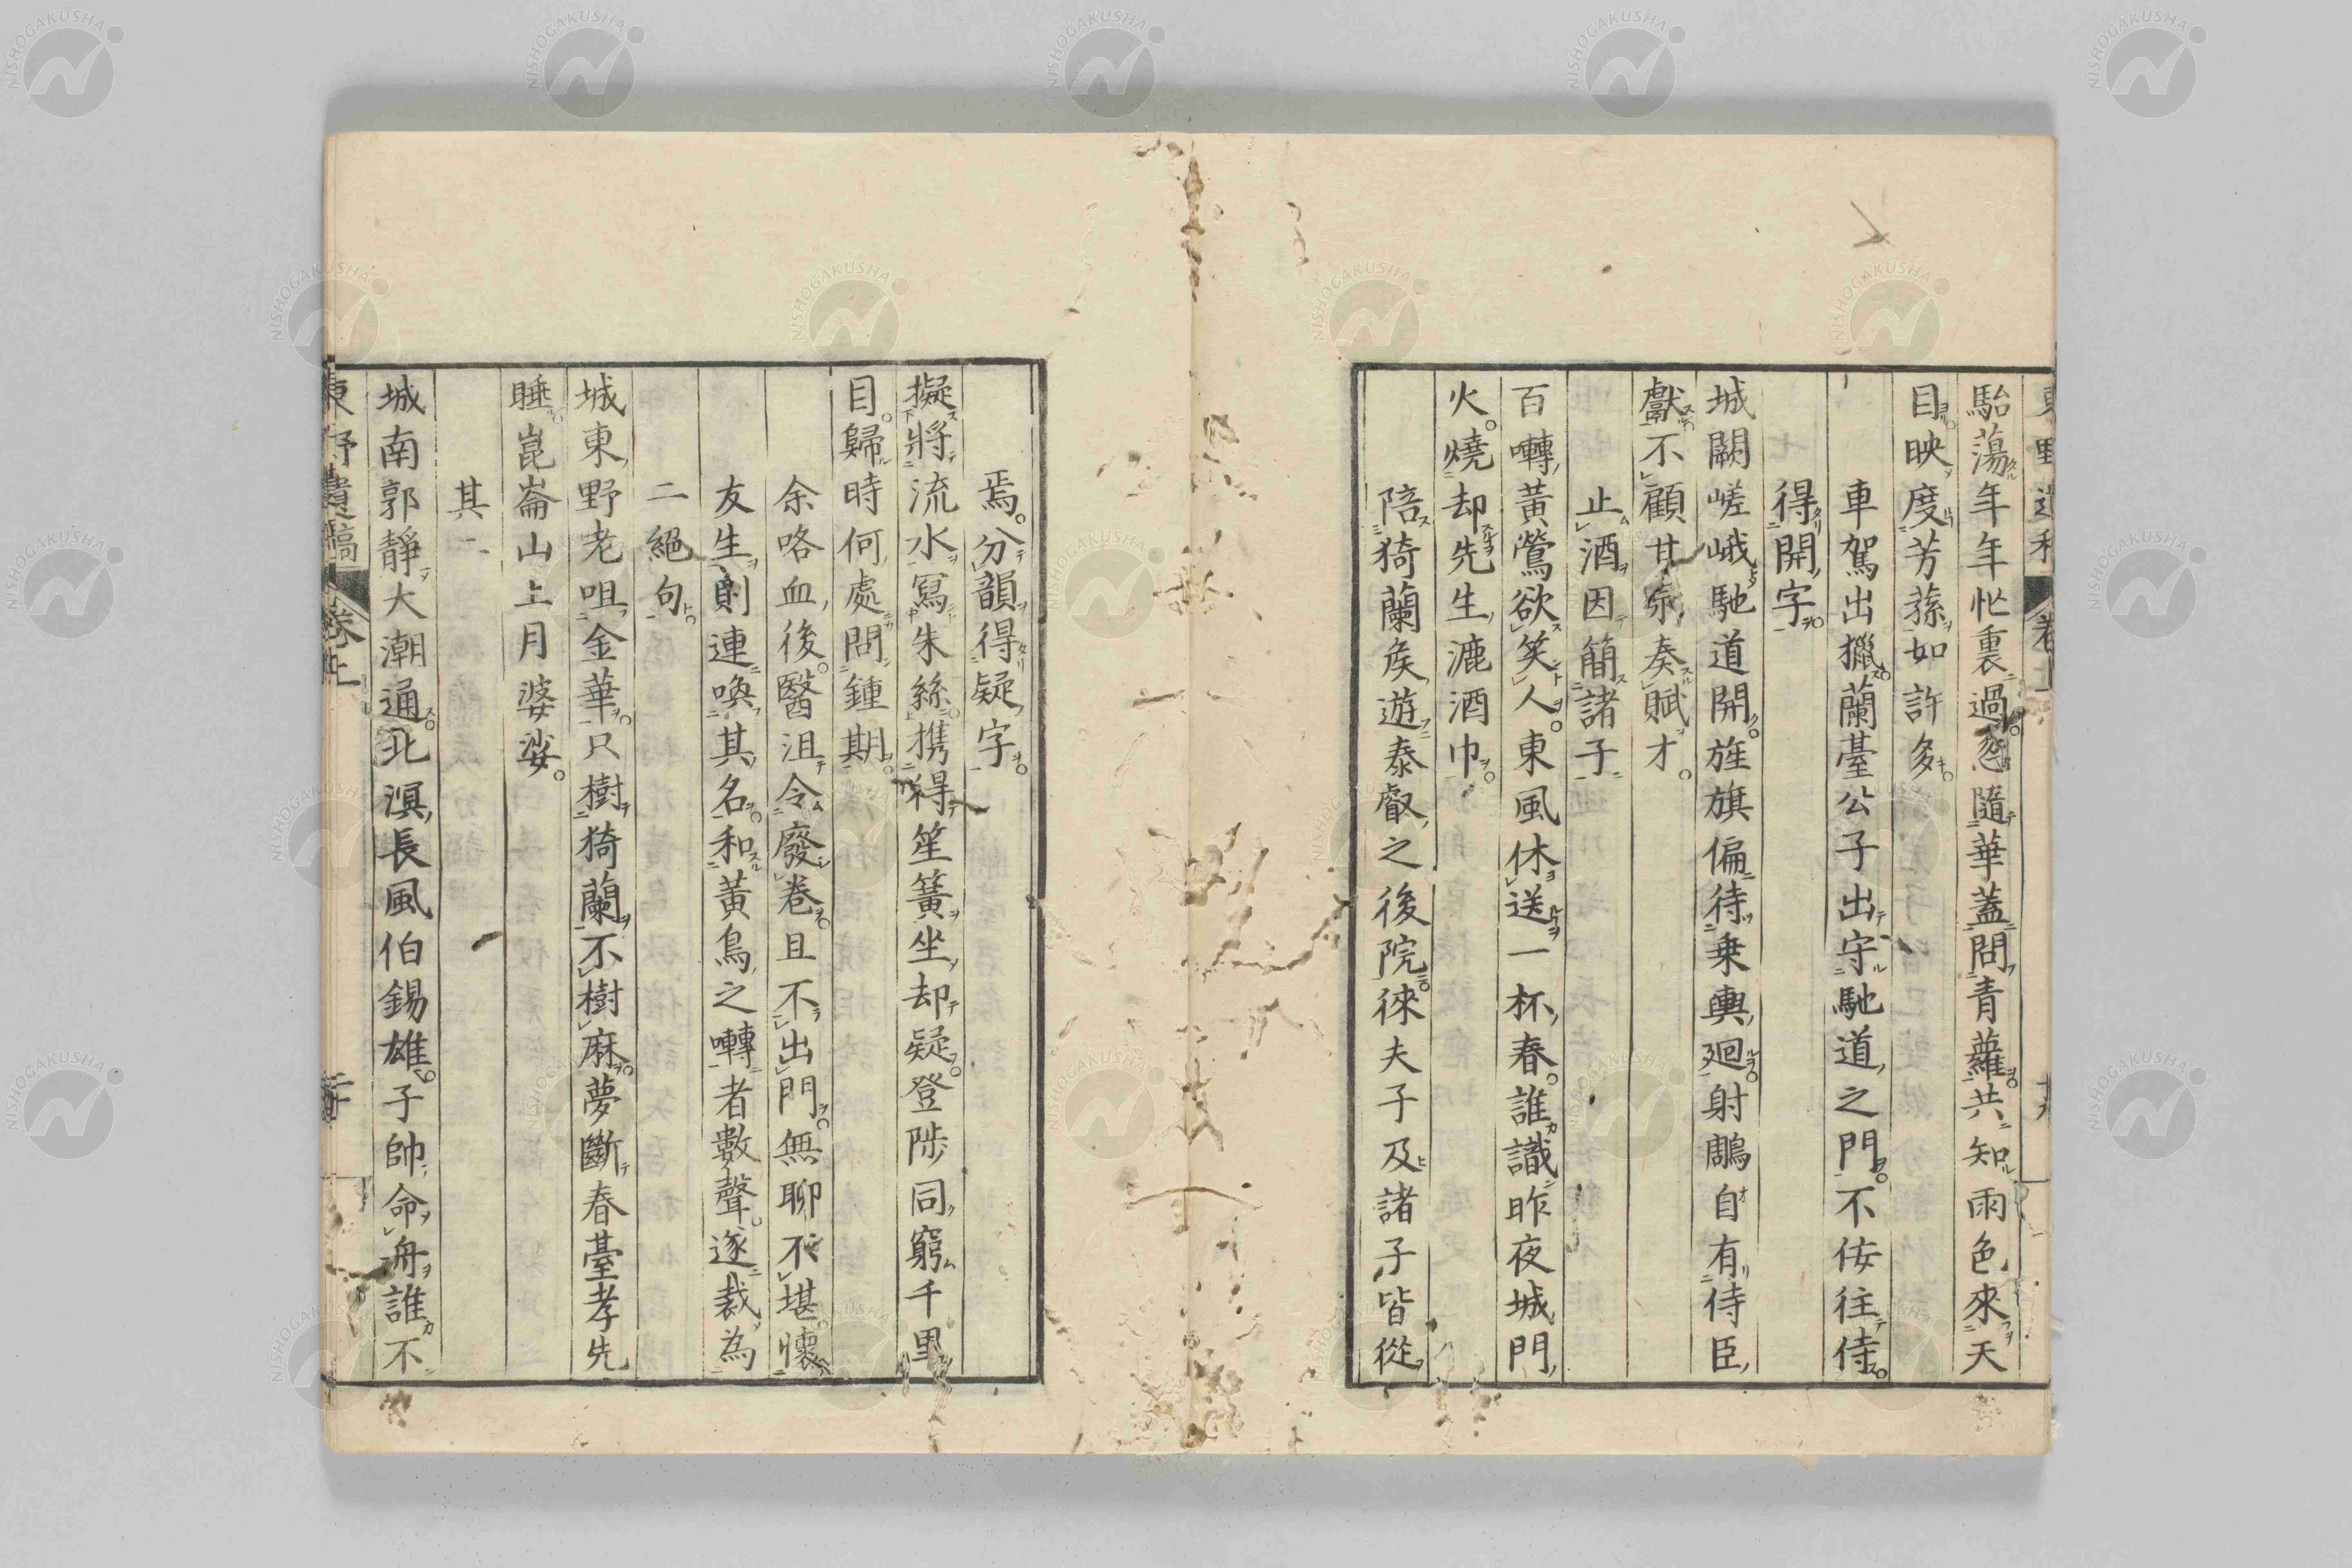 東野遺稿 卷上
駘蕩年年忙裏過忽隨華蓋問青蘿共知雨色來天
目映度芳蓀如許多
車駕出獵蘭臺公子出守馳道之門不侫往侍
得開字
城闕嵯峨馳道開旌旗偏待乘輿廻射鵰自有侍臣
獻不顧甘泉奏賦才
止酒因簡諸子
百囀黃鶯欲笑人東風休送一杯春誰識昨夜城門
火燒却先生漉酒巾
陪猗蘭矦遊泰叡之後院徠夫子及諸子皆從
焉分韻得疑字
擬將流水寫朱絲携得笙簧坐却疑登陟同窮千里
目歸時何處問鍾期
余咯血後醫沮令廢卷且不出門無聊不堪懷
友生則連喚其名和黃鳥之囀者數聲遂裁為
二絕句
城東野老咀金華只樹猗蘭不樹麻夢斷春臺孝先
睡崑崙山上月婆娑
其二
城南郭靜大潮通北溟長風伯錫雄子帥命舟誰不
東野遺稿 卷上 二十
NISHOGAKUSHA